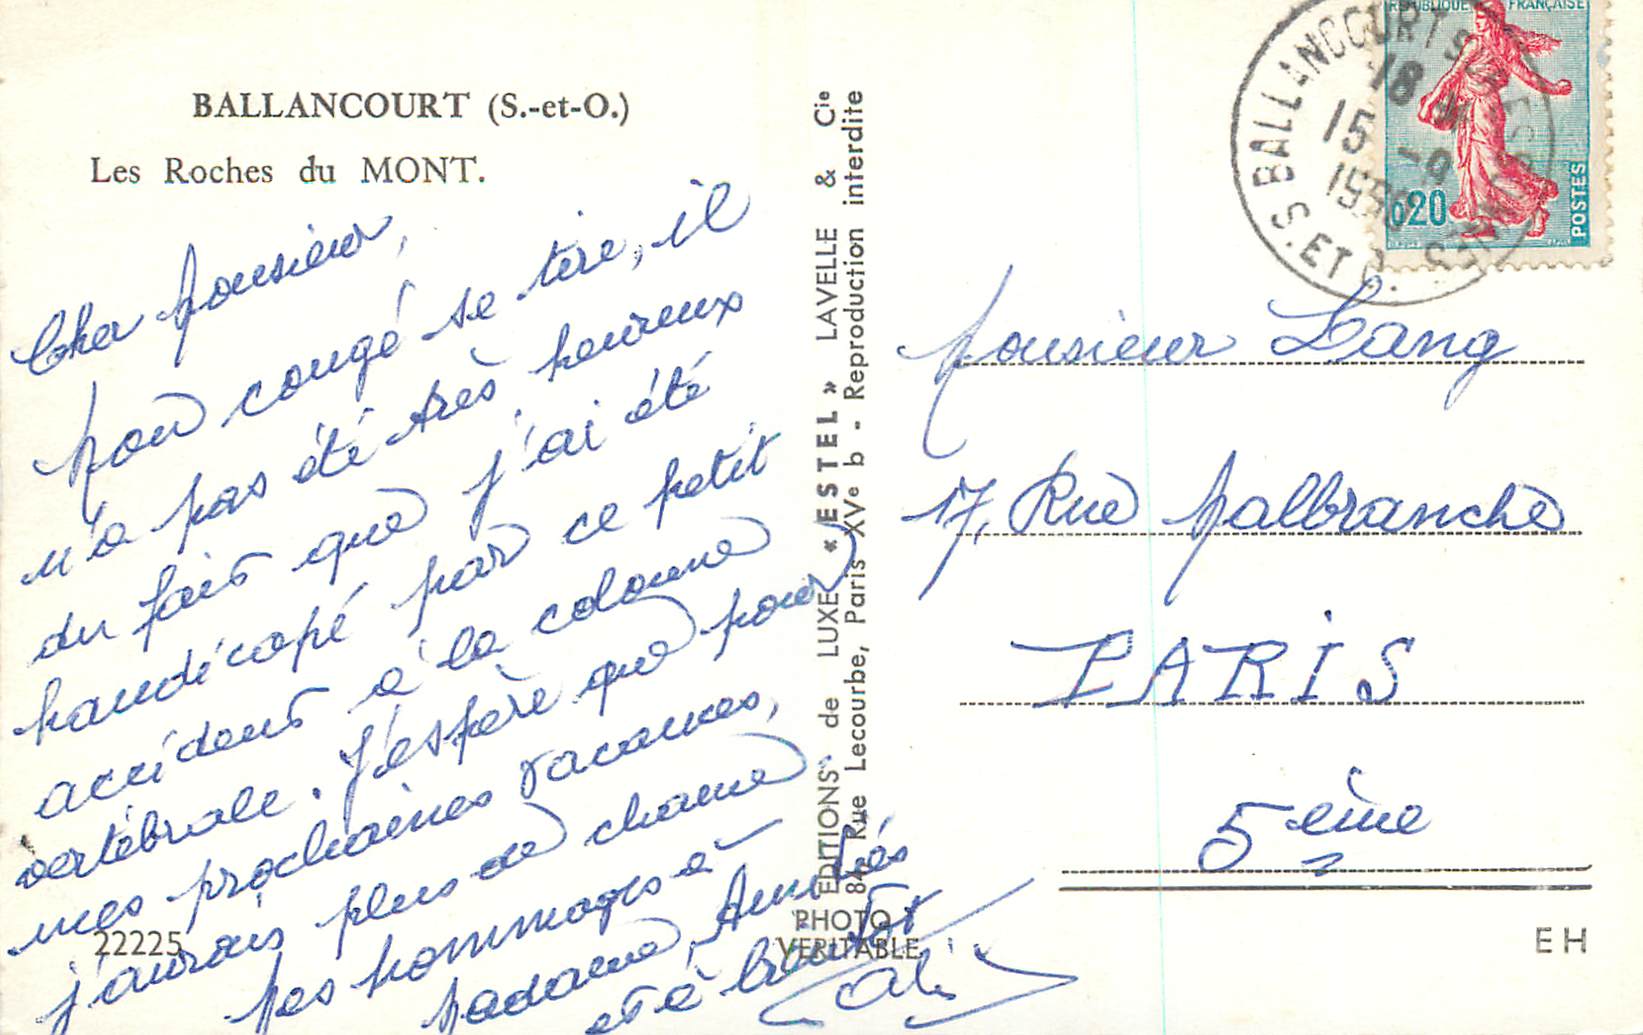 BALLANCOURT (S.-et-O.)
Les Roches du MONT.
Cher Monsieur,
Mon congé se tire, il
n'a pas été très heureux
du fait que j'ai été
handicapé par ce petit
accident à la colonne
vertébrale. J'espère que pour
mes prochaines vacances,
j'aurais plus de chance
Mes hommages à
Madame, Amitiés
et à bientôt
22225
EDITIONS de LUXE « ESTEL » LAVELLE & Cie
84 Rue Lecourbe, Paris XVe b - Reproduction interdite
PHOTO
VERITABLE
REPUBLIQUE FRANÇAISE
0,20
POSTES
BALLANCOURT
S. ET O.
18
15 -9
Monsieur Lang
17, Rue Malbranche
PARIS
5ème
EH